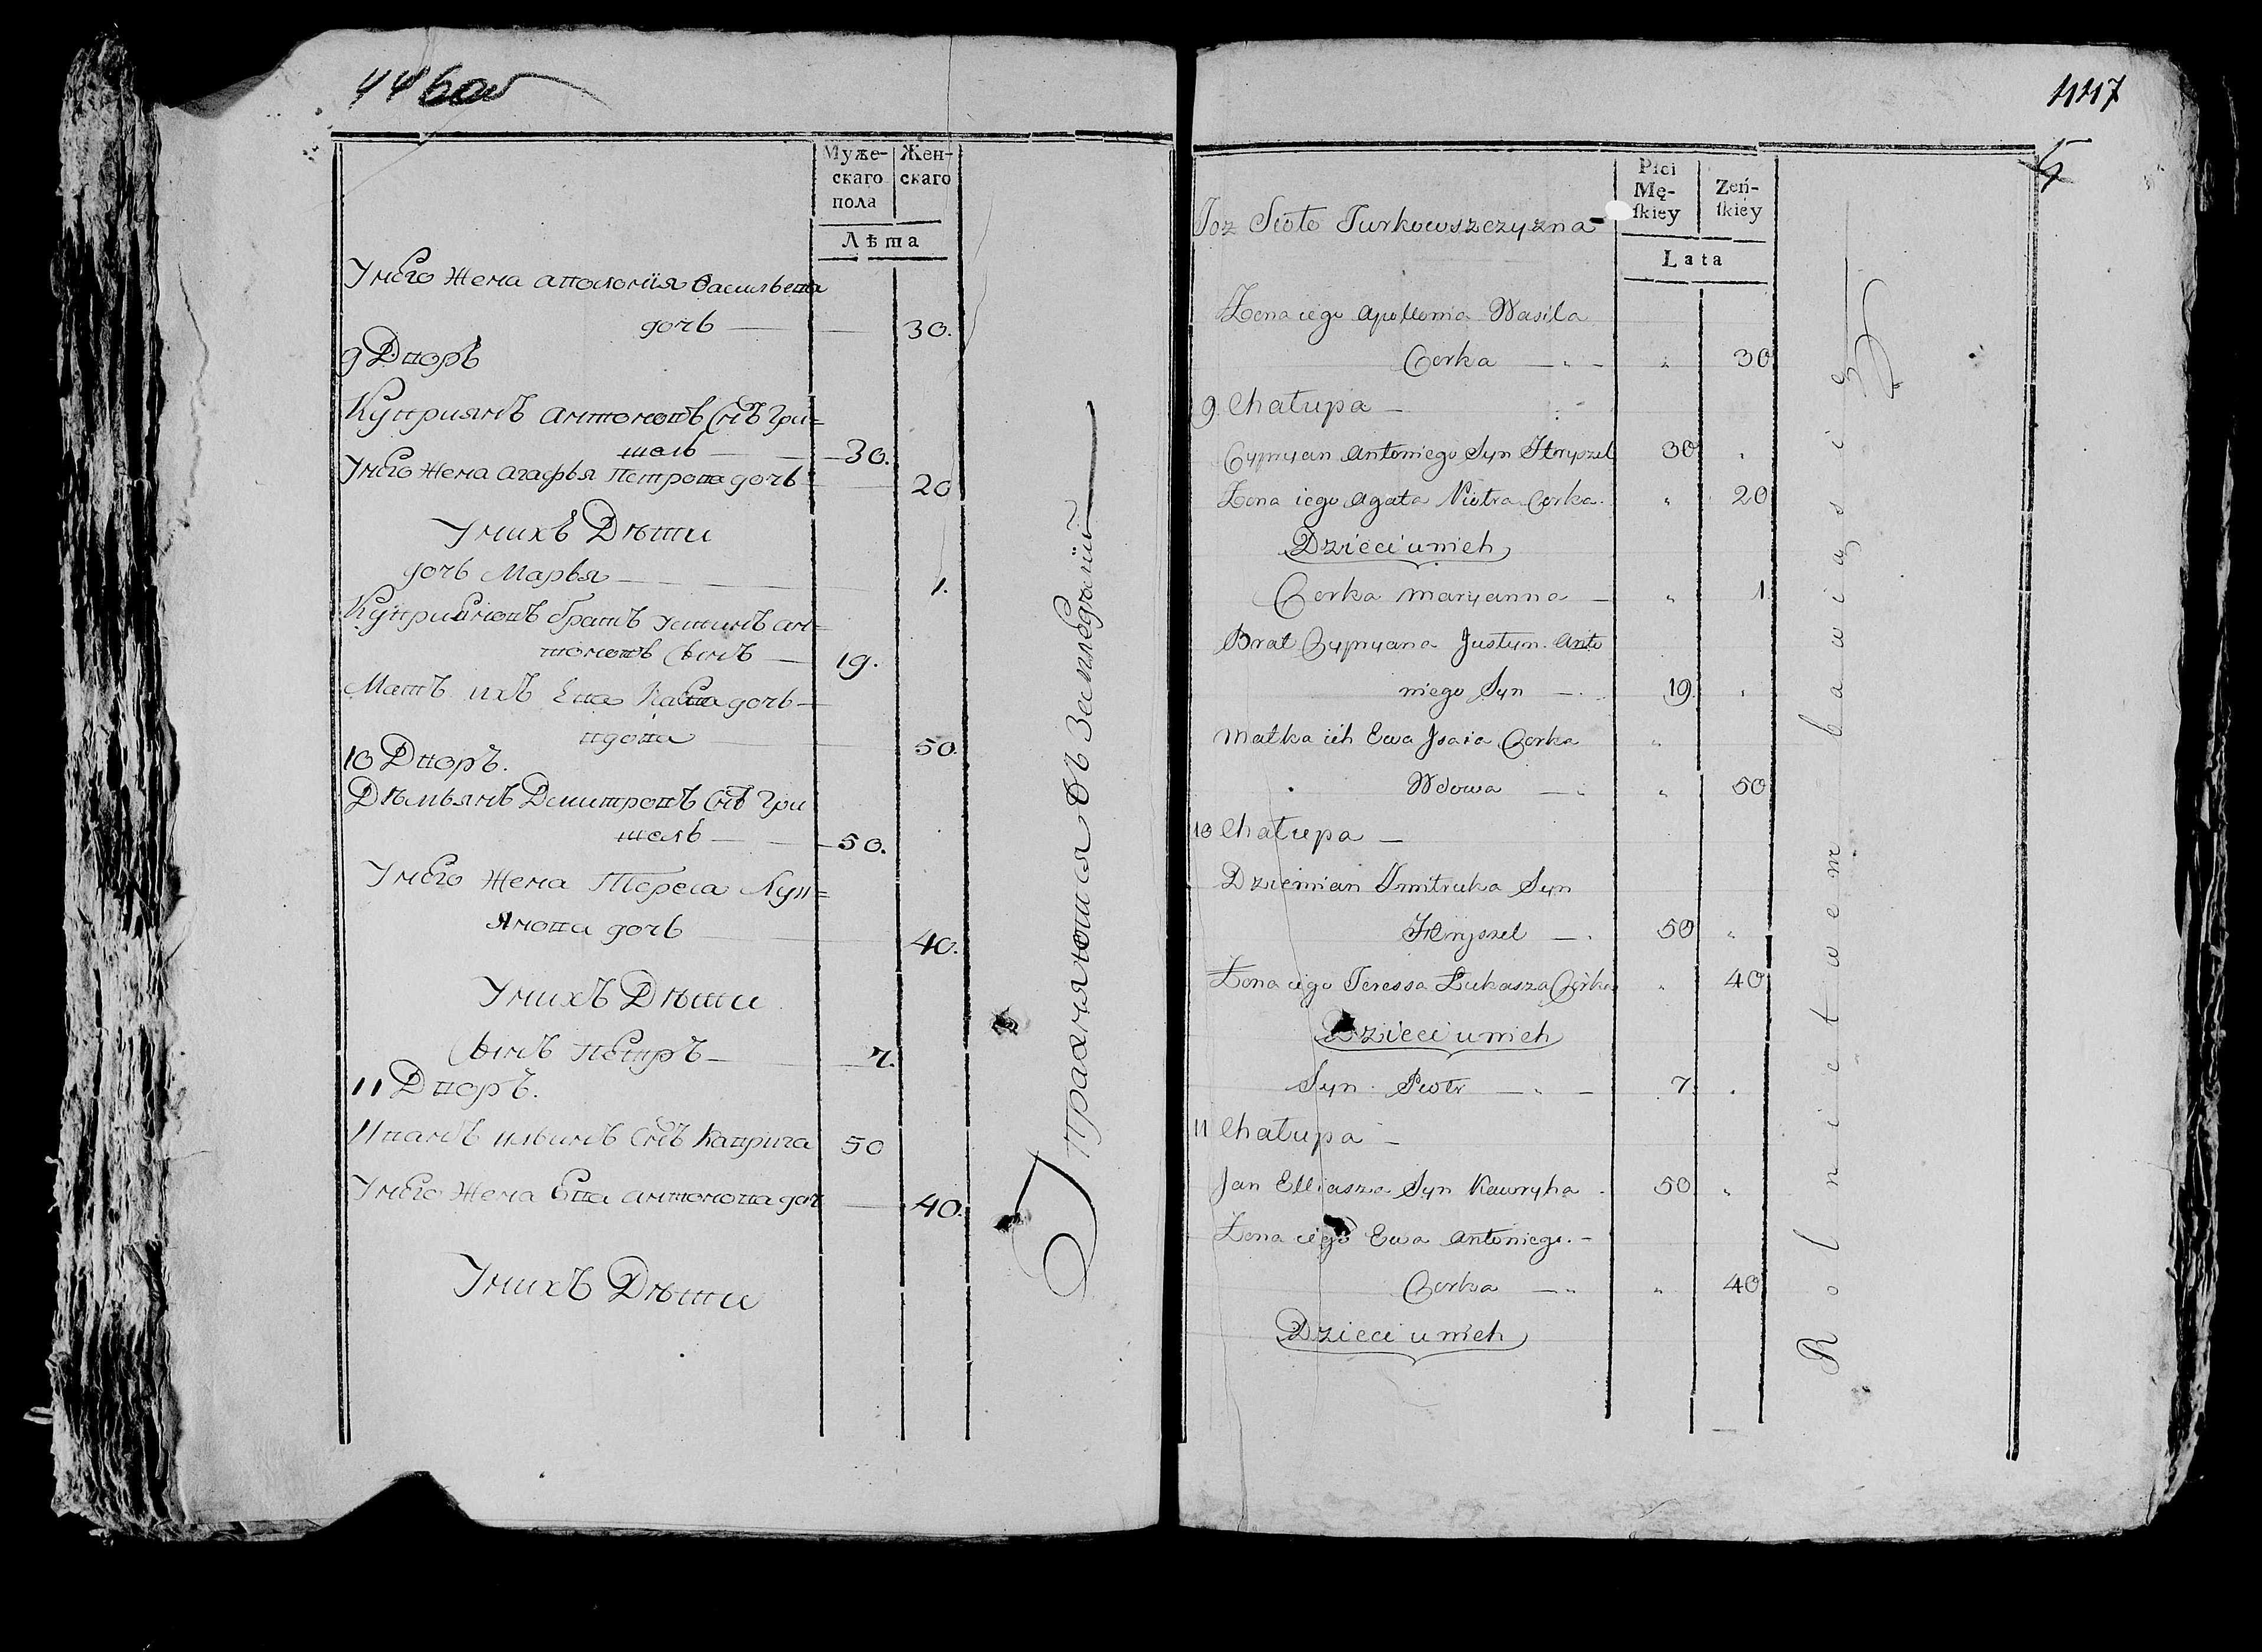 446об
Муже-
скаго
пола
Жен-
скаго
Лѣта
Унего Жена аполонія васильева
дочь — 30.
9 Дворъ
Куприянъ антоновъ Снъ Гри=
шель — 30.
Унего Жена агафья Петрова дочь 20
Унихъ Дѣти
дочь Марья — 1.
Куприяновъ братъ устинъ ан=
тоновъ Сынъ — 19.
Мать ихъ Ева дочь —
вдова 50.
10 Дворъ.
Дѣмьянъ Дмитровъ Снъ Гри
шель — 50.
Унего Жена Тереса Лук=
янова дочь 40.
Унихъ Дѣти
Сынъ Петръ — 7.
11 Дворъ.
Иванъ ильинъ Снъ Каврига 50
Унего Жена Ева антонова доч 40.
Унихъ Дѣти
Упражняются въ Земледѣлии
447
5
Toz Sioło Turkowszczyzna
Płci
Mę-
skiey
Żeń-
skiéy
Lata
Żona iego Apollonia Wasila
Corka — " — " 30
9 Chałupa —
Cypryan Antoniego Syn Hryszel 30 "
Żona iego Agata Piotra Corka. " 20
Dzieci u nich
Corka Maryanna — " 1
Brat Cypryana Justyn Anto
niego Syn — 19 "
Matka ich Ewa Jsaia Corka "
Wdowa — " 50
10 Chałupa —
Dziemian Dmitruka Syn
Hryszel — 50 "
Żona iego Teressa Łukasza Córka " 40
Dzieci u nich
Syn Piotr — " — 7 "
11 Chałupa —
Jan Elliasza Syn Kawryha 50 "
Żona iego Ewa Antoniego. —
Corka — " " 40
Dzieci u nich
Rolnictwem bawią się